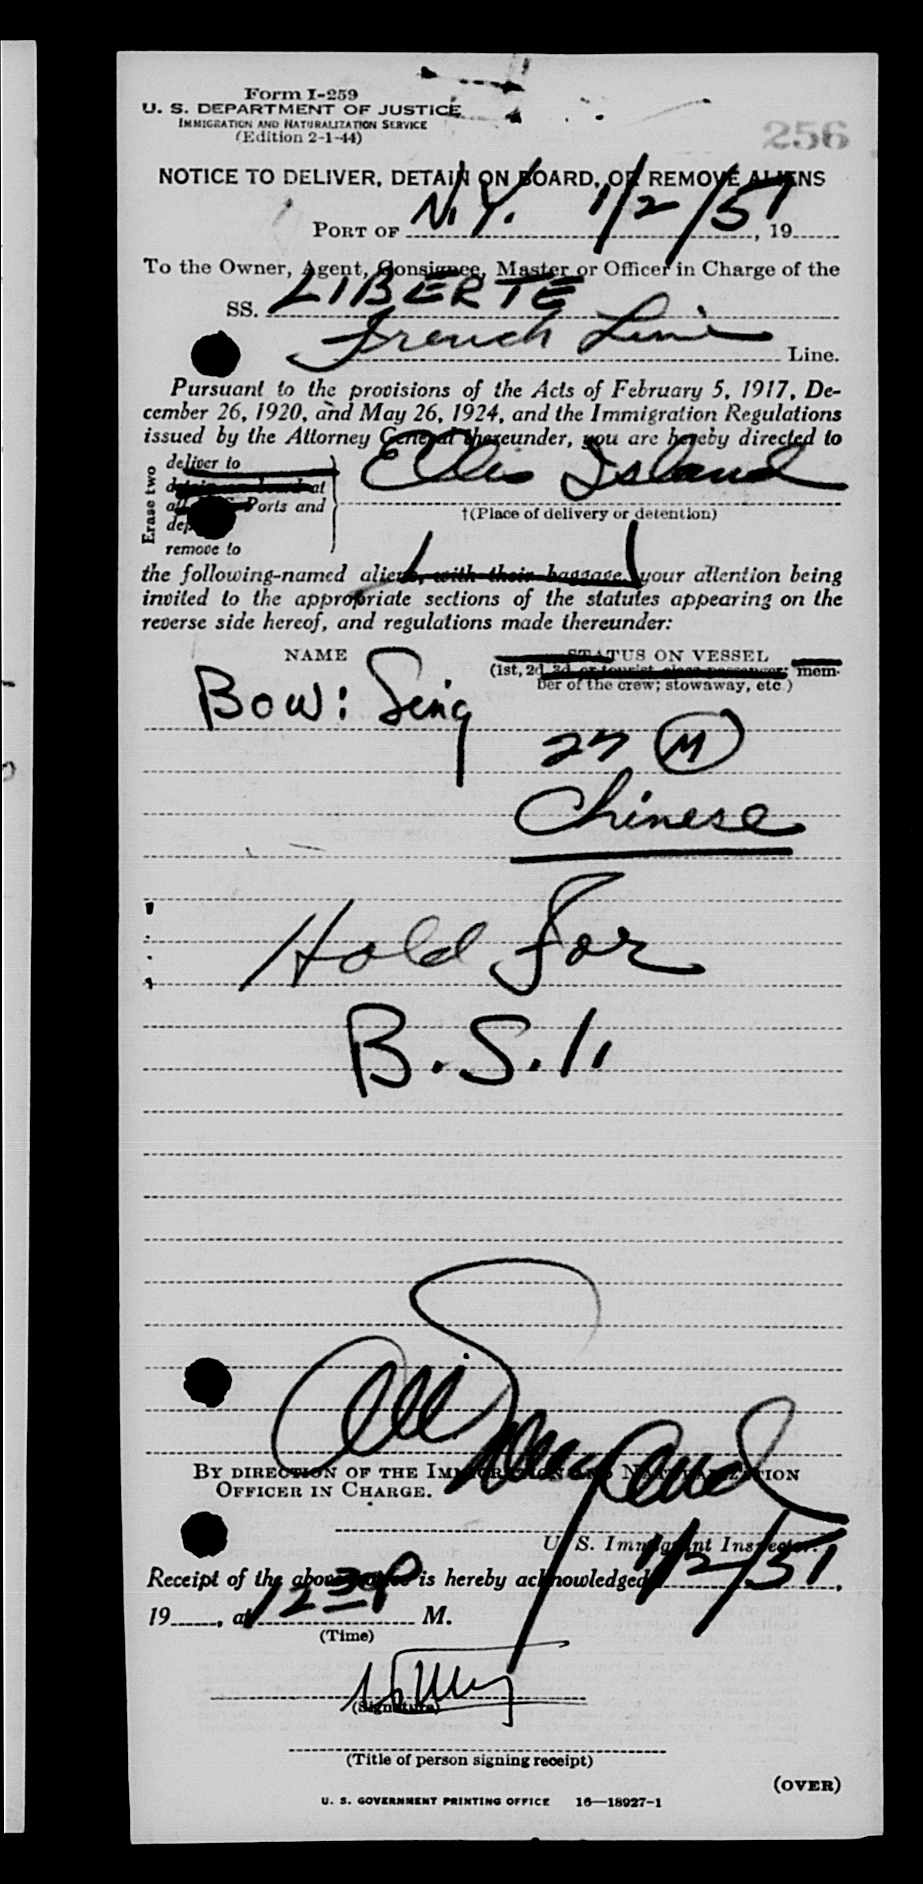 Form I-259
U. S. DEPARTMENT OF JUSTICE
IMMIGRATION AND NATURALIZATION SERVICE
(Edition 2-1-44)
256
NOTICE TO DELIVER, DETAIN ON BOARD, OR REMOVE ALIENS
PORT OF N.Y. 1/2/51, 19
To the Owner, Agent, Consignee, Master or Officer in Charge of the
SS. LIBERTE
French Line Line.
Pursuant to the provisions of the Acts of February 5, 1917, De-
cember 26, 1920, and May 26, 1924, and the Immigration Regulations
issued by the Attorney General thereunder, you are hereby directed to
Erase two
deliver to
detain on board at
all U. S. Ports and
remove to
Ellis Island
†(Place of delivery or detention)
the following-named aliens, with their baggage, your attention being
invited to the appropriate sections of the statutes appearing on the
reverse side hereof, and regulations made thereunder:
NAME STATUS ON VESSEL
(1st, 2d, 3d, or tourist class passenger; mem-
ber of the crew; stowaway, etc.)
Bow: Seng
27 M
Chinese
Hold For
B.S.I.
BY DIRECTION OF THE IMMIGRATION AND NATURALIZATION
OFFICER IN CHARGE.
U. S. Immigrant Inspector.
Receipt of the above notice is hereby acknowledged 1/2/51,
19, at 1230P M.
(Time)
(Signature)
(Title of person signing receipt)
(OVER)
U. S. GOVERNMENT PRINTING OFFICE 16—18927-1